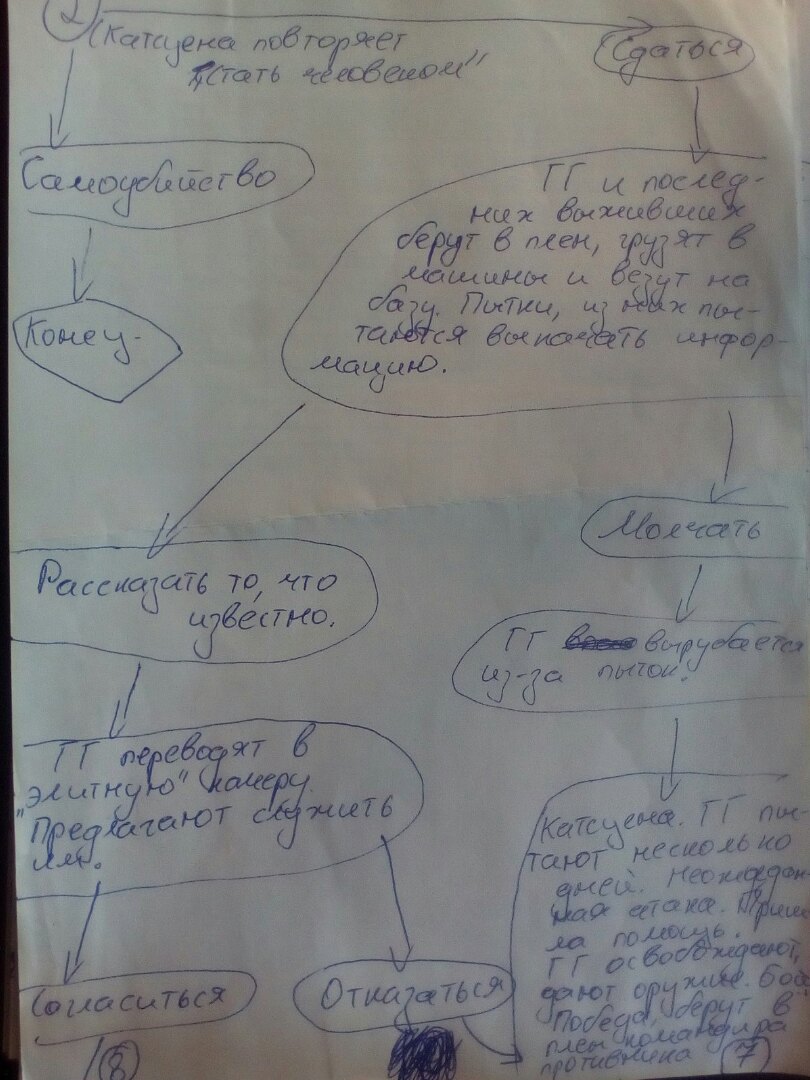 2
(Катсцена повторяет
"Стать человеком"
Сдаться
Самоубийство
Конец.
ГГ и послед-
них выживших
берут в плен, грузят в
машины и везут на
базу. Пытки, из них пы-
таются выкачать инфор-
мацию.
Рассказать то, что
известно.
Молчать
ГГ вырубается
из-за пыток.
ГГ переводят в
"элитную" камеру.
Предлагают служить
им.
Согласиться
8
Отказаться
Катсцена. ГГ пы-
тают несколько
дней. Неожидан-
ная атака. Приш-
ла помощь.
ГГ освобождают,
дают оружие. Бой.
Победа, берут в
плен командира
противника
7